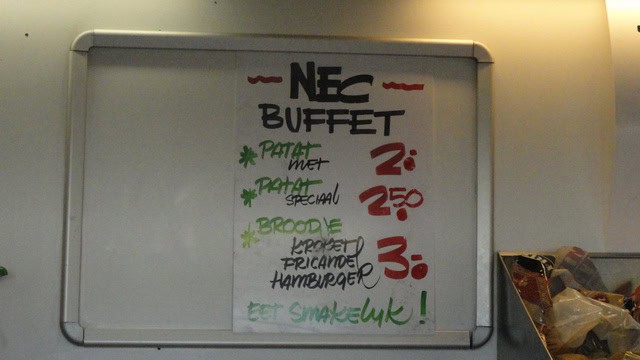 - NEC -
BUFFET
* PATAT MET 2:
* PATAT SPECIAAL 2.50
* BROODJE
KROKET
FRICANDEL 3:-
HAMBURGER
EET SMAKELYK!